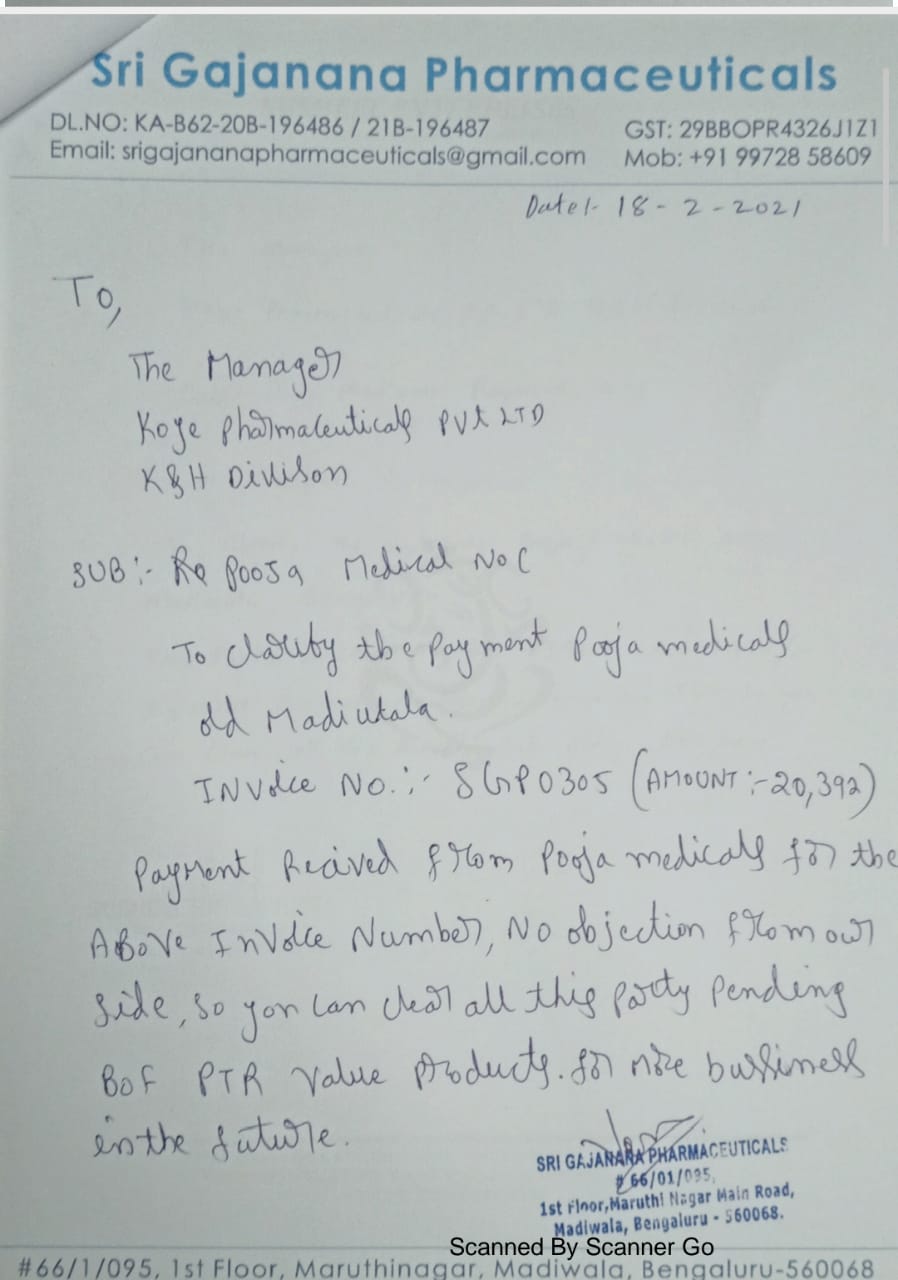 Sri Gajanana Pharmaceuticals
DL.NO: KA-B62-20B-196486 / 21B-196487 GST: 29BBOPR4326J1Z1
Email: srigajananapharmaceuticals@gmail.com Mob: +91 99728 58609
Date:- 18-2-2021
To,
The Manager
Koye Pharmaceuticals PVt LTD
K&H Divison
SUB:- Re Pooja Medical NOC
To clarity the payment Pooja medicals
old Madiwala.
INVoice No.:- SGP0305 (AMOUNT:-20,392)
Payment Recived from Pooja medicals for the
ABove InVoice Number, No objection from our
side, so you can clear all this party Pending
BOF PTR Value products. for more bussiness
in the future.
SRI GAJANANA PHARMACEUTICALS
# 66/01/095,
1st Floor, Maruthi Nagar Main Road,
Madiwala, Bengaluru - 560068.
Scanned By Scanner Go
#66/1/095, 1st Floor, Maruthinagar, Madiwala, Bengaluru-560068